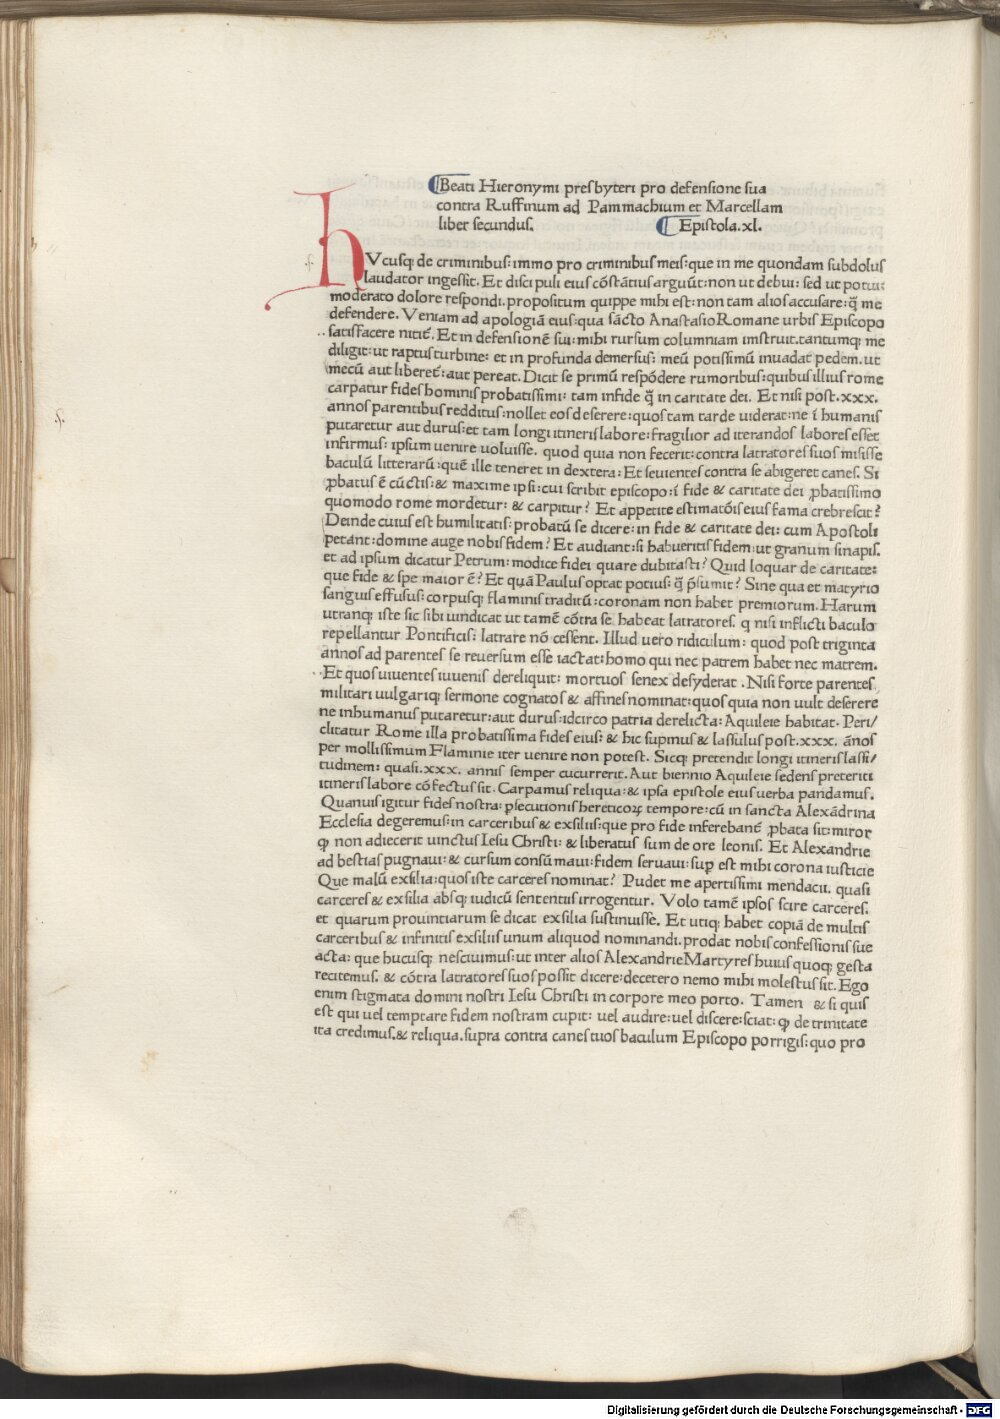 Beati Hieronymi presbyteri pro defensione sua
contra Ruffinum ad Pammachium et Marcellam
liber secundus. Epistola.xl.
hVcusq; de criminibus: immo pro criminibus meis: que in me quondam subdolus
laudator ingessit. Et discipuli eius cōstātius arguūt: non ut debui: sed ut potui:
moderato dolore respondi. propositum quippe mihi est: non tam alios accusare: q̄ me
defendere. Veniam ad apologiā eius: qua sācto Anastasio Romane urbis Episcopo
satisfacere nitit᷑. Et in defensionē sui: mihi rursum columniam instruit. tantumq; me
diligit: ut raptus turbine: et in profunda demersus: meū potissimū inuadat pedem. ut
mecū aut liberet᷑: aut pereat. Dicit se primū respōdere rumoribus: quibus illius rome
carpatur fides hominis probatissimi: tam infide q̄ in caritate dei. Et nisi post.xxx.
annos parentibus redditus: nollet eos deserere: quos tam tarde uiderat: ne ī humanis
putaretur aut durus: et tam longi itineris labore: fragilior ad iterandos labores esset
infirmus: ipsum uenire uoluisse. quod quia non fecerit: contra latratores suos misisse
baculū litterarū: quē ille teneret in dextera: Et seuientes contra se abigeret canes. Si
ꝓbatus ē cūctis: & maxime ipsi: cui scribit episcopo: ī fide & caritate dei ꝓbatissimo
quomodo rome mordetur: & carpitur? Et appetite estimatōis eius fama crebrescit?
Deinde cuius est humilitatis: probatū se dicere: in fide & caritate dei: cum Apostoli
petant: domine auge nobis fidem? Et audiant: si habueritis fidem: ut granum sinapis.
et ad ipsum dicatur Petrum: modice fidei quare dubitasti? Quid loquar de caritate:
que fide & spe maior ē? Et quā Paulus optat potius: q̄ p̄sumit? Sine qua et matyrio
sanguis effusus: corpusq; flaminis traditū: coronam non habet premiorum. Harum
utranq; iste sic sibi uindicat ut tamē cōtra se habeat latratores. q nisi inflicti baculo
repellantur Pontificis: latrare nō cessent. Illud uero ridiculum: quod post triginta
annos ad parentes se reuersum esse iactat: homo qui nec patrem habet nec matrem.
Et quos uiuentes iuuenis dereliquit: mortuos senex desyderat. Nisi forte parentes
militari uulgariq; sermone cognatos & affines nominat: quos quia non uult deserere
ne inhumanus putaretur: aut durus: idcirco patria derelicta: Aquileie habitat. Peri/
clitatur Rome illa probatissima fides eius: & hic supinus & lassulus post.xxx. ānos
per mollissimum Flaminie iter uenire non potest. Sicq; pretendit longi itineris lassi/
tudinem: quasi.xxx. annis semper cucurrerit. Aut biennio Aquileie sedens preteriti
itineris labore cōfectus sit. Carpamus reliqua: & ipsa epistole eius uerba pandamus.
Quanuis igitur fides nostra: ꝑsecutionis hereticoꝝ tempore: cū in sancta Alexādrina
Ecclesia degeremus: in carceribus & exsiliis: que pro fide inferebant᷑ ꝓbata sit: miror
ꝙ non adiecerit uinctus Iesu Christi: & liberatus sum de ore leonis. Et Alexandrie
ad bestias pugnaui: & cursum consūmaui: fidem seruaui: suꝑ est mihi corona iusticie
Que malū exsilia: quos iste carceres nominat? Pudet me apertissimi mendacii. quasi
carceres & exsilia absq; iudicū sententiis irrogentur. Volo tamē ipsos scire carceres.
et quarum prouintiarum se dicat exsilia sustinuisse. Et utiq; habet copiā de multis
carceribus & infinitis exsiliis unum aliquod nominandi. prodat nobis confessionis sue
acta: que hucusq; nesciuimus: ut inter alios Alexandrie Martyres huius quoq; gesta
recitemus. & cōtra latratores suos possit dicere: decetero nemo mihi molestus sit. Ego
enim stigmata domini nostri Iesu Christi in corpore meo porto. Tamen & si quis
est qui uel temptare fidem nostram cupit: uel audire: uel discere: sciat: ꝙ de trinitate
ita credimus. & reliqua. supra contra canes tuos baculum Episcopo porrigis: quo pro
Digitalisierung gefördert durch die Deutsche Forschungsgemeinschaft - DFG